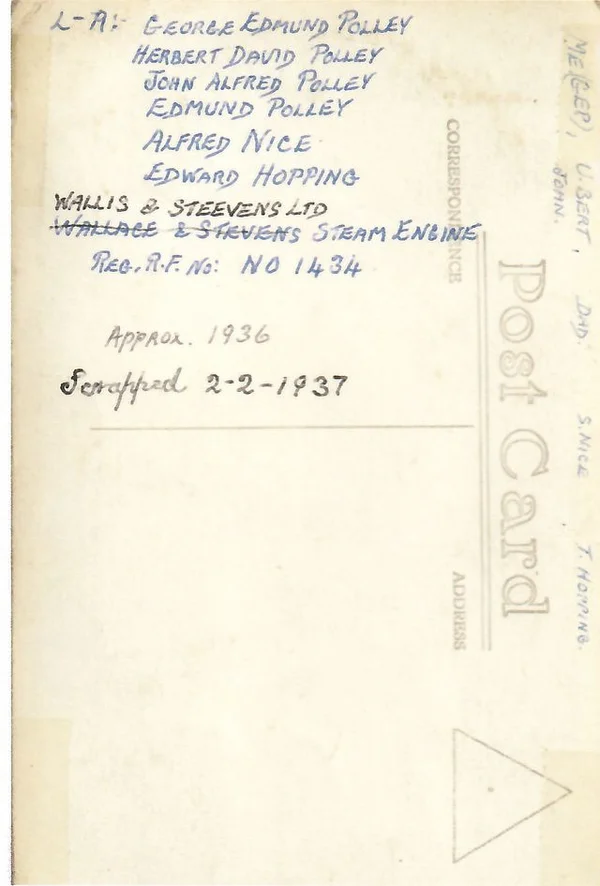 L-R:- GEORGE EDMUND POLLEY
HERBERT DAVID POLLEY
JOHN ALFRED POLLEY
EDMUND POLLEY
ALFRED NICE
EDWARD HOPPING
WALLIS & STEEVENS LTD
WALLACE & STEVENS STEAM ENGINE
REG. R.F. No: NO 1434
APPROX. 1936
Scrapped 2-2-1937
CORRESPONDENCE
Post Card
ADDRESS
ME (GEP), U. BERT, DAD. S. NICE T. HOPPING.
JOHN.